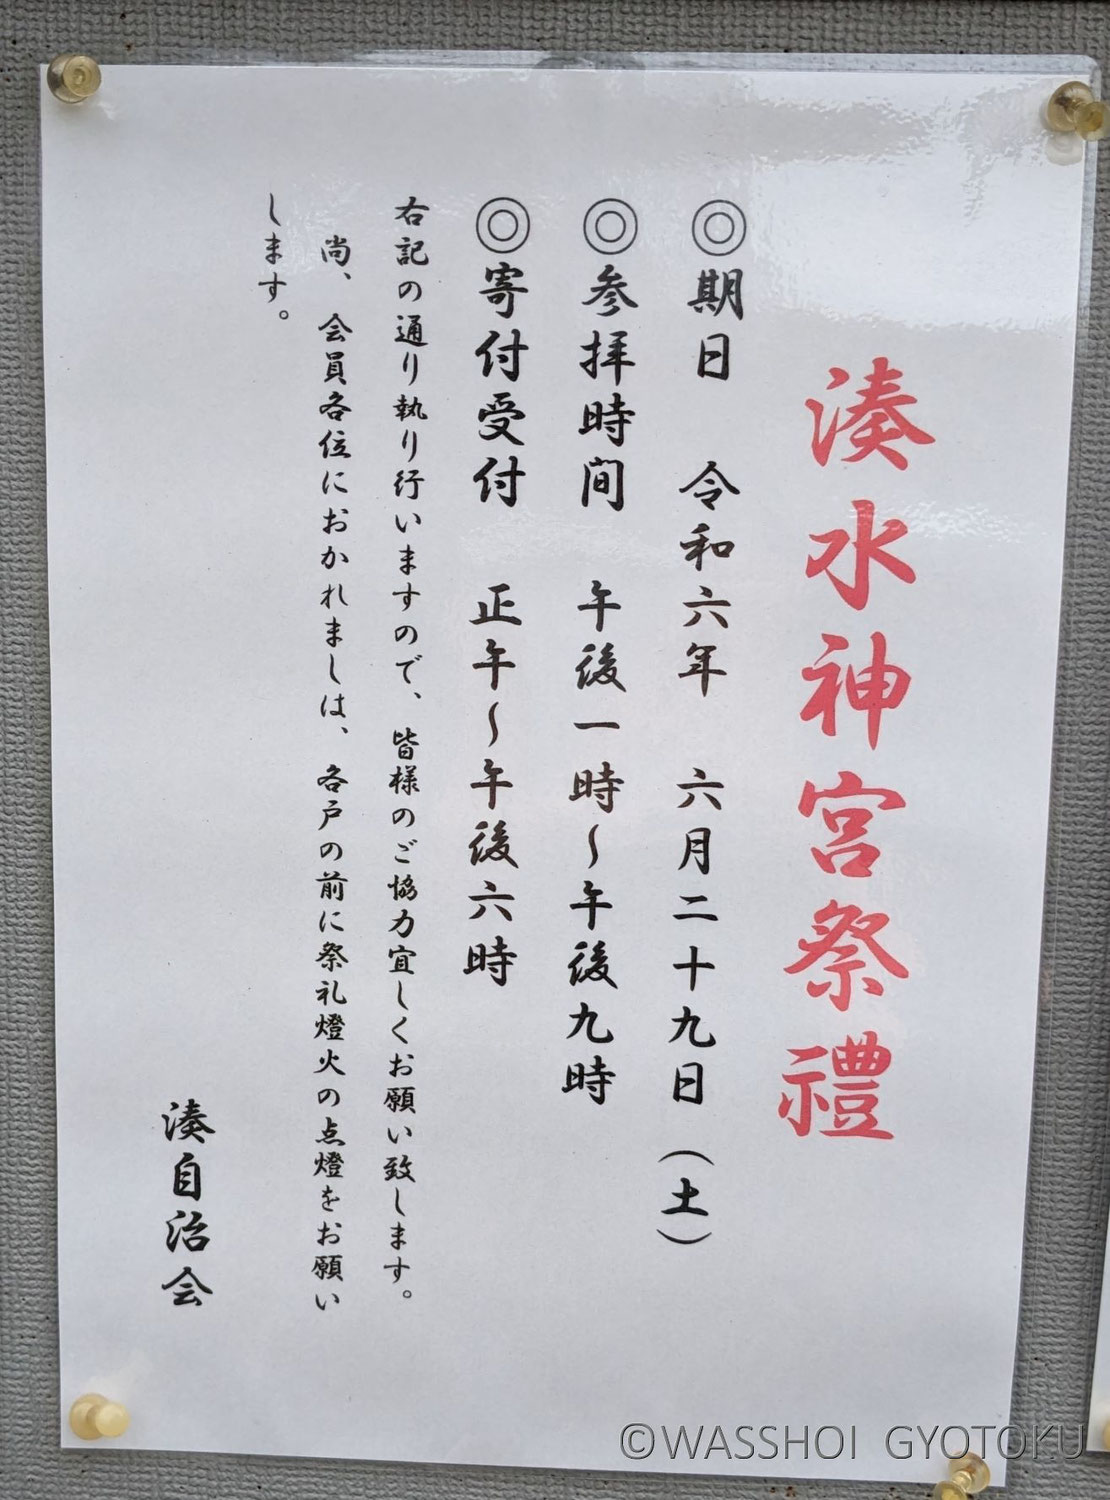 湊水神宮祭禮
◎期日 令和六年 六月二十九日（土）
◎参拝時間 午後一時～午後九時
◎寄付受付 正午～午後六時
右記の通り執り行いますので、皆様のご協力宜しくお願い致します。
尚、会員各位におかれましは、各戸の前に祭礼燈火の点燈をお願い
します。
湊自治会
©WASSHOI GYOTOKU